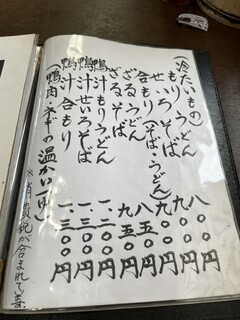 (冷たいもの)
もりうどん 八〇〇円
せいろそば 九〇〇円
合もり(そば・うどん) 九〇〇円
ざるうどん 八五〇円
ざるそば 九五〇円
鴨汁もりうどん 一、二〇〇円
鴨汁せいろそば 一、三〇〇円
鴨汁合もり 一、三〇〇円
(鴨肉・ネギの温かい汁)
※消費税が含まれてます